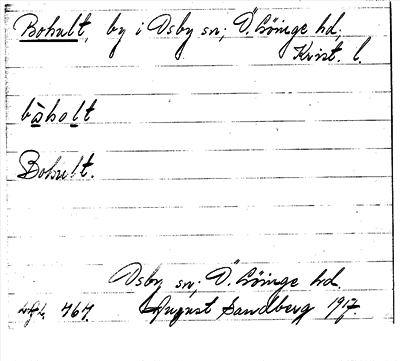 Bohult, by i Osby sn; Ö. Göinge hd;
Krist. l.
bàholt
Bohult.
Osby sn; Ö. Göinge hd.
464. August Sandberg 1917.